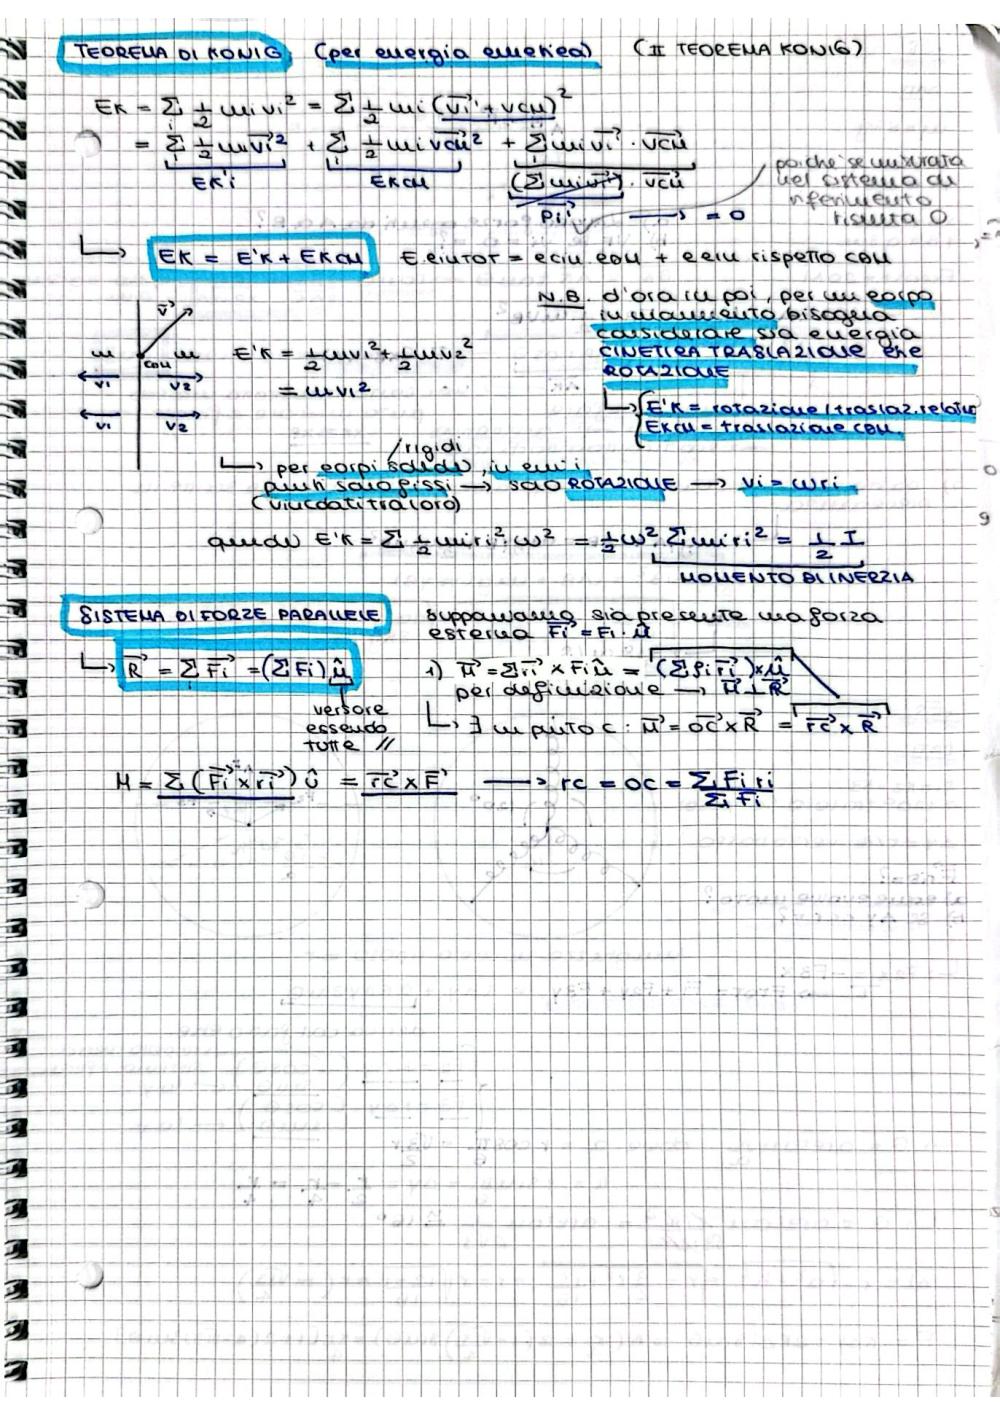 TEOREMA DI KONIG (per energia cinetica) (II TEOREMA KONIG)
EK = Σi 1/2 mi vi² = Σ 1/2 mi (vi' + vCM)²
= Σi 1/2 mi vi'² + Σi 1/2 mi vCM² + Σi mi vi' · vCM
EK'i EKCM (Σ mi vi') · vCM
Pi' → = 0
poiché se misurata
nel sistema di
riferimento
risulta 0
↳ EK = E'K + EKCM E cin TOT = e cin com + e cin rispetto com
N.B. d'ora in poi, per un corpo
in movimento bisogna
considerare sia energia
CINETICA TRASLAZIONE che
ROTAZIONE
↳ { E'K = rotazione / traslaz. relativa
EKCM = traslazione com.
v
m m
com
v1 v2
v1 v2
E'K = 1/2 mv1² + 1/2 mv2²
= mv1²
↳ per corpi solidi / rigidi, in cui i
punti sono fissi → solo ROTAZIONE → vi = ωri
(vincolati tra loro)
quindi E'K = Σ 1/2 mi ri² · ω² = 1/2 ω² · Σ mi ri² = 1/2 I
MOMENTO DI INERZIA
SISTEMA DI FORZE PARALLELE supponiamo sia presente una forza
esterna Fi = Fi · û
↳ R = Σi Fi = (Σ Fi) û
versore
essendo
tutte //
1) M = Σ ri × Fi û = (Σ fi ri) × û
per definizione → M ⊥ R
↳ ∃ un punto C : M = OC × R = rc × R
M = Σ (Fi × ri) û = rc × F → rc = OC = Σi Fi ri / Σi Fi